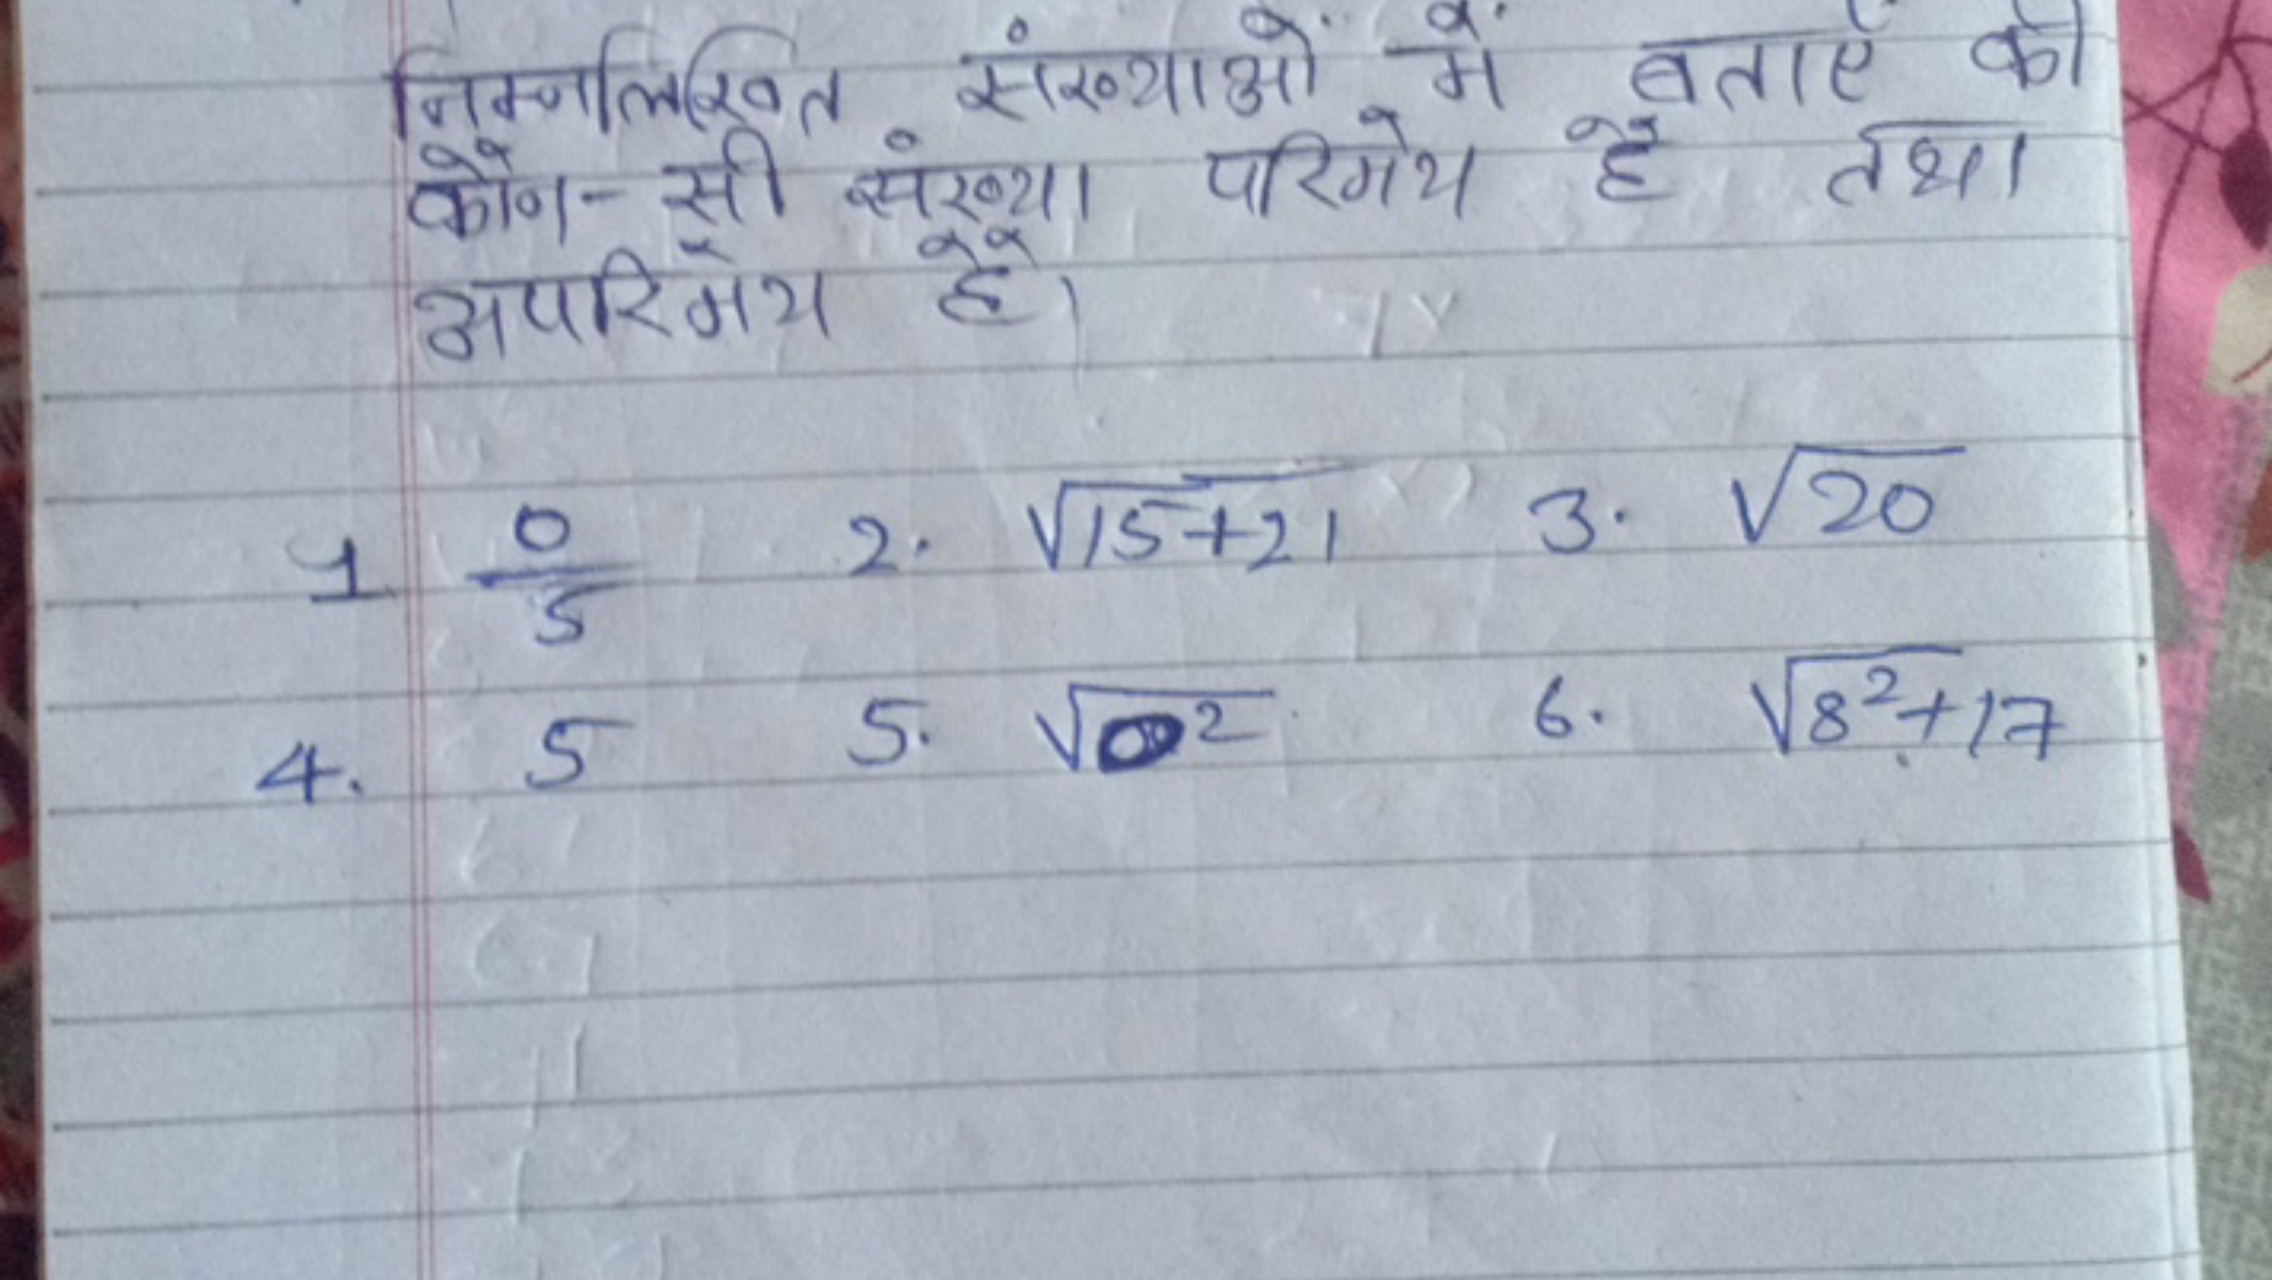 निम्नलिखित संख्याओं में बताएँ की
कौन-सी संख्या परिमेय है तथा
अपरिमेय है।
1 0/5 2. √15+21 3. √20
4. 5 5. √ 2 6. √8²+17